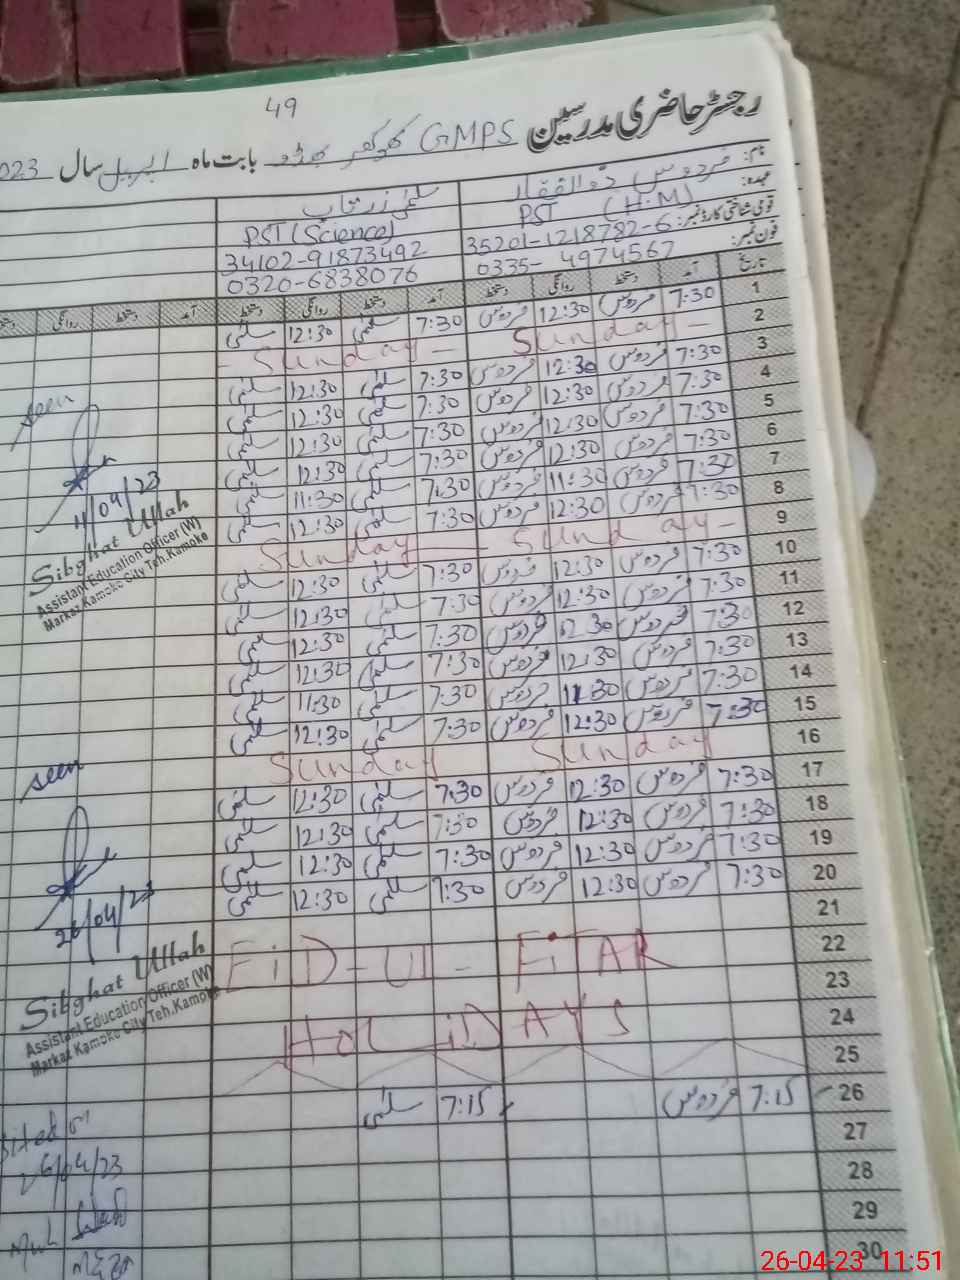 49
رجسٹر حاضری مدرسین GMPS کھوکھر بھڈو بابت ماہ اپریل سال 2023
نام: فردوس ذوالفقار سلمیٰ زرتاب
عہدہ: PST (H.M) PST (Science)
قومی شناختی کارڈ نمبر: 35201-1218782-6 34102-91873492
فون نمبر: 0335-4974567 0320-6838076
تاریخ آمد دستخط روانگی دستخط آمد دستخط روانگی دستخط آمد دستخط روانگی دستخط
1 7:30 فردوس 12:30 فردوس 7:30 سلمیٰ 12:30 سلمیٰ
2 Sunday - - Sunday -
3 7:30 فردوس 12:30 فردوس 7:30 سلمیٰ 12:30 سلمیٰ
4 7:30 فردوس 12:30 فردوس 7:30 سلمیٰ 12:30 سلمیٰ
5 7:30 فردوس 12:30 فردوس 7:30 سلمیٰ 12:30 سلمیٰ
6 7:30 فردوس 12:30 فردوس 7:30 سلمیٰ 12:30 سلمیٰ
7 7:30 فردوس 11:30 فردوس 7:30 سلمیٰ 11:30 سلمیٰ
8 7:30 فردوس 12:30 فردوس 7:30 سلمیٰ 12:30 سلمیٰ
9 Sunday - Sunday -
10 7:30 فردوس 12:30 فردوس 7:30 سلمیٰ 12:30 سلمیٰ
11 7:30 فردوس 12:30 فردوس 7:30 سلمیٰ 12:30 سلمیٰ
12 7:30 فردوس 12:30 فردوس 7:30 سلمیٰ 12:30 سلمیٰ
13 7:30 فردوس 12:30 فردوس 7:30 سلمیٰ 12:30 سلمیٰ
14 7:30 فردوس 11:30 فردوس 7:30 سلمیٰ 11:30 سلمیٰ
15 7:30 فردوس 12:30 فردوس 7:30 سلمیٰ 12:30 سلمیٰ
16 Sunday Sunday
17 7:30 فردوس 12:30 فردوس 7:30 سلمیٰ 12:30 سلمیٰ
18 7:30 فردوس 12:30 فردوس 7:30 سلمیٰ 12:30 سلمیٰ
19 7:30 فردوس 12:30 فردوس 7:30 سلمیٰ 12:30 سلمیٰ
20 7:30 فردوس 12:30 فردوس 7:30 سلمیٰ 12:30 سلمیٰ
21
22 EiD-Ul-FiTAR
23
24 HOLiDAYS
25
26 7:15 فردوس 7:15 سلمیٰ
27
28
29
30
seen
11/04/23
Sibghat Ullah
Assistant Education Officer (W)
Markaz Kamoke City Teh.Kamoke
seen
26/04/23
Sibghat Ullah
Assistant Education Officer (W)
Markaz Kamoke City Teh.Kamoke
on
26/04/23
26-04-23 11:51